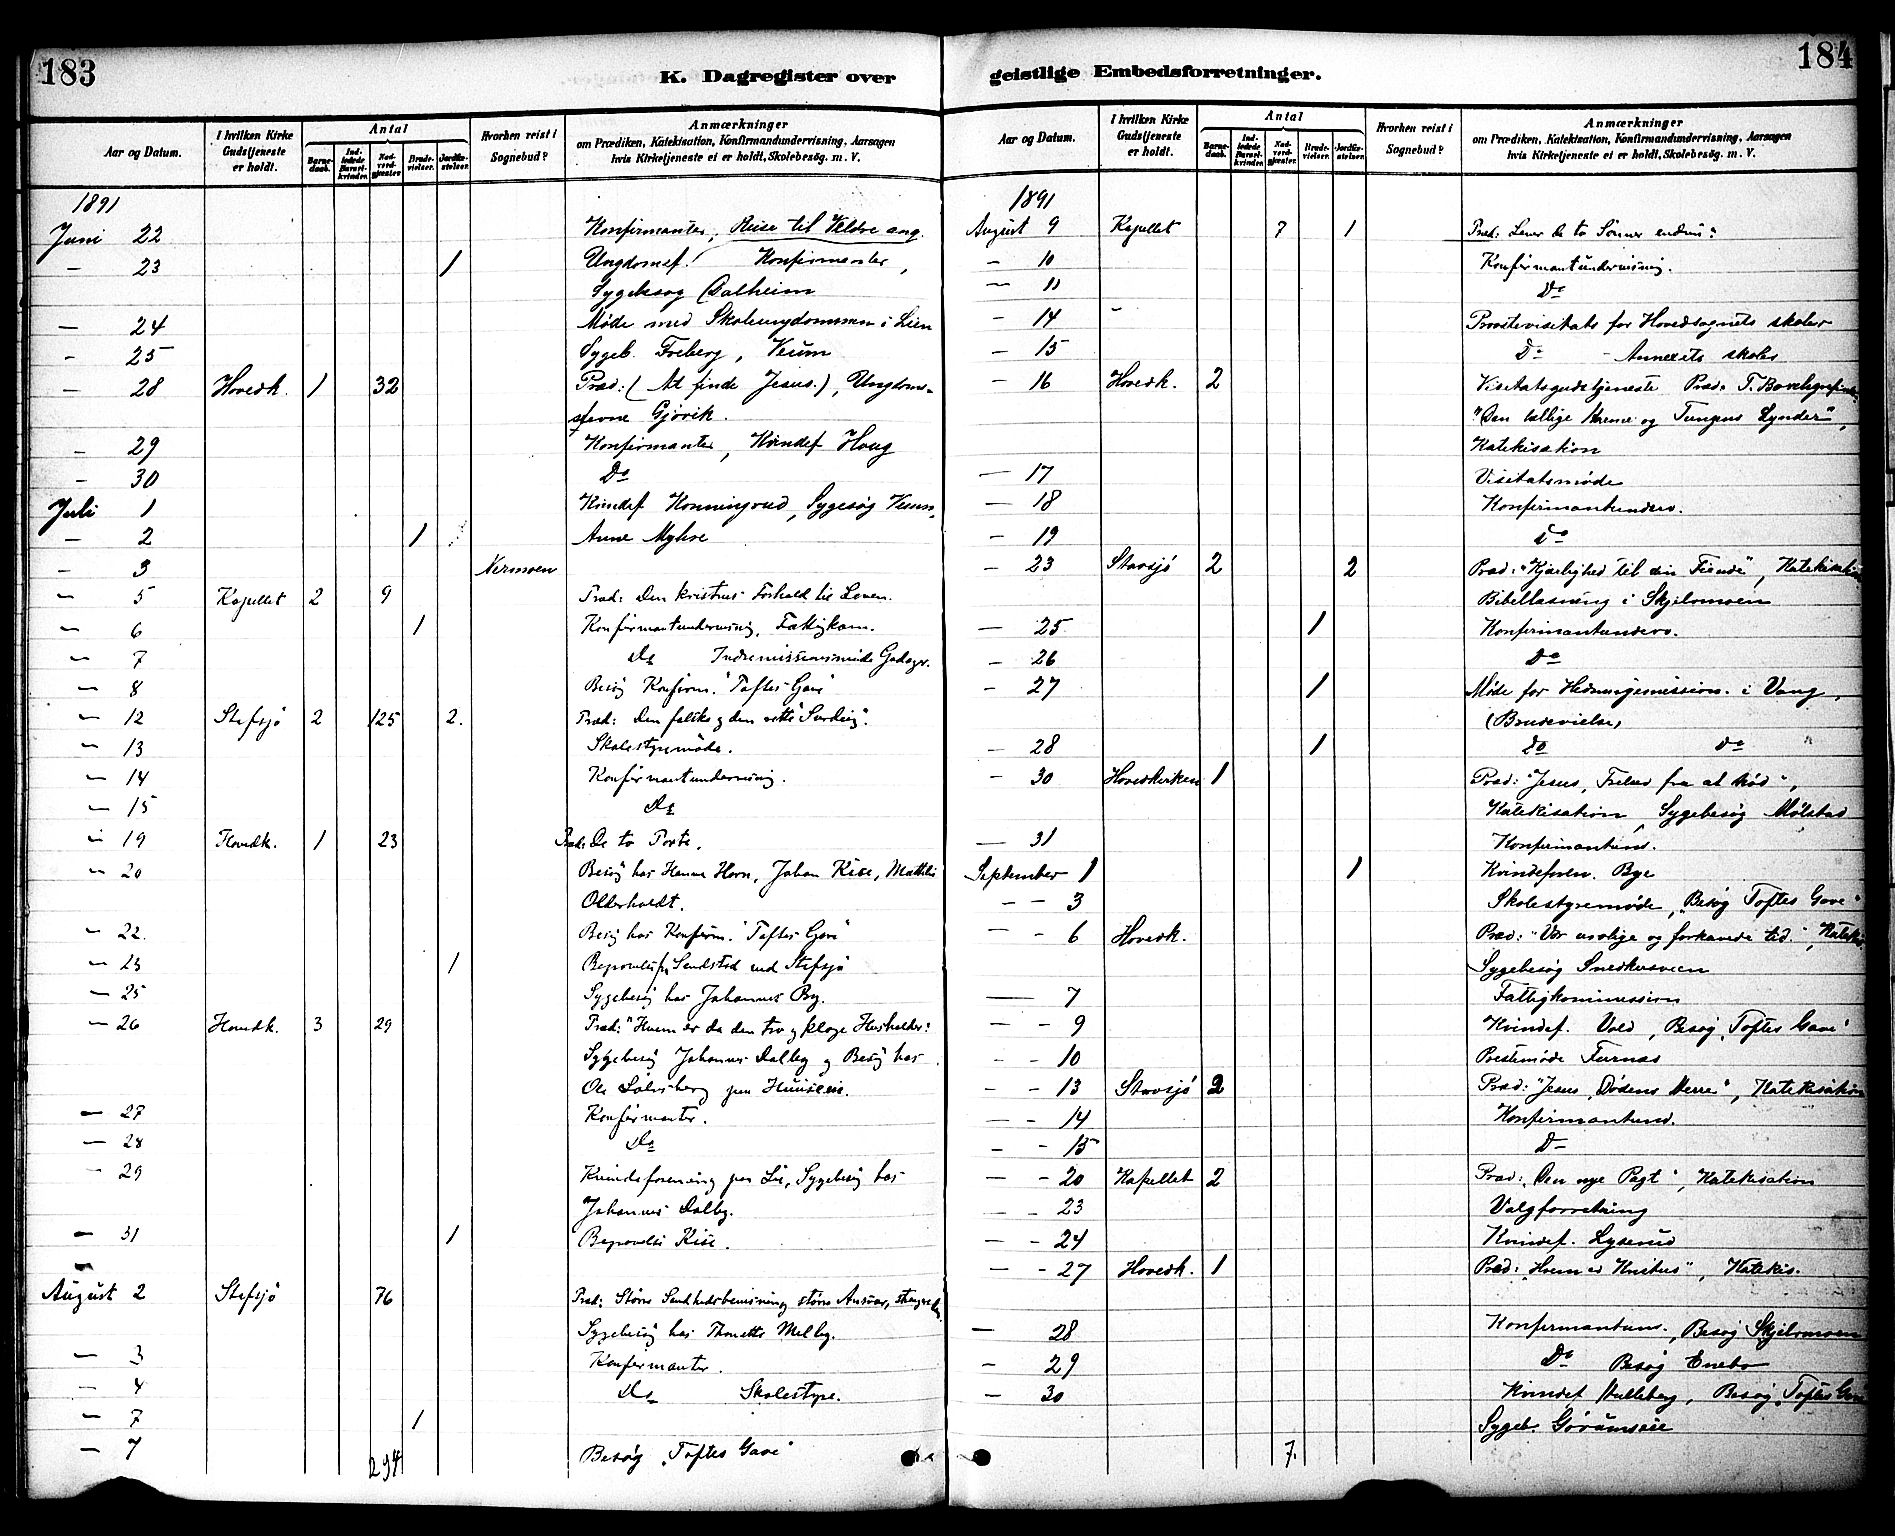 183
K. Dagregister over
Aar og Datum.
I hvilken Kirke Gudstjeneste er holdt.
Antal
Barnedaab.
Indledede Barselkvinder.
Nadverdgjester.
Brudevielser.
Jordfæstelser.
Hvorhen reist i Sognebud?
Anmærkninger
om Prædiken, Katekisation, Konfirmandundervisning, Aarsagen
hvis Kirketjeneste ei er holdt, Skolebesøg. m. V.
1891
Juni 22 Konfirmanter, Reise til Veldre ang.
— 23 1 Ungdomsf. Konfirmanter,
Sygebesøg Dalheim
— 24 Møde med Skoleungdommen i Lien
- 25 Sygeb. Freberg, Veum
- 28 Hovedk. 1 32 Præd: (At finde Jesus.), Ungdoms-
stevne Gjövik.
- 29 Konfirmanter, Kvindef Houg
- 30 Do
Juli 1 Kvindef Honningrud, Sygesøg Veum,
— 2 1 Anne Myhre
— 3 Nermoen
— 5 Kapellet 2 9 Præd: Den kristnes Forhold til Loven.
— 6 1 Konfirmantundervisnig, Fattigkom.
— 7 Do Indremissionsmøde
— 8 Besøg Konfirm. "Toftes Gave"
— 12 Stefsjø 2 125 2. Præd: Den falske og den rette
— 13 Skolestyremøde.
— 14 Konfirmantundervisnig.
— 15 Do
— 19 Hovedk. 1 23 Præd: De to Porte.
— 20 Besøg hos Hanne Horn, Johan Kise, Mathilde
Olderholdt.
— 22. Besøg hos Konfirm. "Toftes Gave"
— 23 1 Begravelse fr. Sendstad ved Stefsjø
— 25 Sygebesøg hos Johannes By.
— 26 Hovedk. 3 29 Præd: "Hvem er da den tro og kloge Husholder"
Sygebesøg Johannes Dalby og Besøg hos
Ole Sölvsberg
— 27 Konfirmanter.
— 28 Do
— 29 Kvindeforening paa Lie, Sygebesøg hos
Johannes Dalby.
— 31 1 Begravelse Kise.
August 2 Stefsjø 76 Præd: Større Ansvar,
Sygebesøg hos Thonette Melby.
— 3 Konfirmanter.
— 4 Do Skolestyre.
— 7 1
— 7 Besøg "Toftes Gave"
294
184
geistlige Embedsforretninger.
Aar og Datum.
I hvilken Kirke Gudstjeneste er holdt.
Antal
Barnedaab.
Indledede Barselkvinder.
Nadverdgjester.
Brudevielser.
Jordfæstelser.
Hvorhen reist i Sognebud?
Anmærkninger
om Prædiken, Katekisation, Konfirmandundervisning, Aarsagen
hvis Kirketjeneste ei er holdt, Skolebesøg. m. V.
1891
August 9 Kapellet 7 1 Præd: Lever de to Sønner endnu?
— 10 Konfirmantundervisnig.
— 11 Do
— 14 Provstevisitats for Hovedsognets skoler
— 15 Do - Annexets skoler
— 16 Hovedk. 2 Visitatsgudstjeneste Præd:
"Den tallige Herme og Tungens Synder",
Katekisation
— 17 Visitatsmøde
— 18 Konfirmantunderv.
— 19 Do
— 23 Stavsjø 2 2 Præd: "Kjærlighed til din Fiende", Katekisation
Bibellæsning i Skjelsmoen
— 25 1 Konfirmantunderv.
— 26 Do
— 27 1 Møde for Hedningemission. i Vang,
(Brudevielse,
— 28 1 do do
— 30 Hovedkirken 1 Præd: "Jesus, Frelser fra al Nød",
Katekisation, Sygebesøg Mölstad
— 31 Konfirmantund.
September 1 1 Kvindeforen. Bye
— — 3 Skolestyremøde, Besøg Toftes Gave"
— - 6 Hovedk. Præd: "Vor urolige og forkavede tid.", Katekis.
Sygebesøg Snedkersveen
— 7 Fattigkommission
— - 9 Kvindef. Vold, Besøg "Toftes Gave"
- - 10 Prestemøde Furnæs
- - 13 Stavsjø 2 Præd: "Jesus, Dødens Herre", Katekisation
— - 14 Konfirmantund.
- 15 D—
— - 20 Kapellet 2 Præd: "Den nye Pagt", Katekisation
— - 23 Valgforretning
— - 24 Kvindef. Lyserud
— - 27 Hovedk. 1 Præd: "Hvem er Kristus", Katekis.
— 28 Konfirmantund., Besøg Skjelsmoen
- 29 Do Besøg Enebo
- 30 Kvindef Hulleberg, Besøg Toftes Gave
Sygeb.
7.